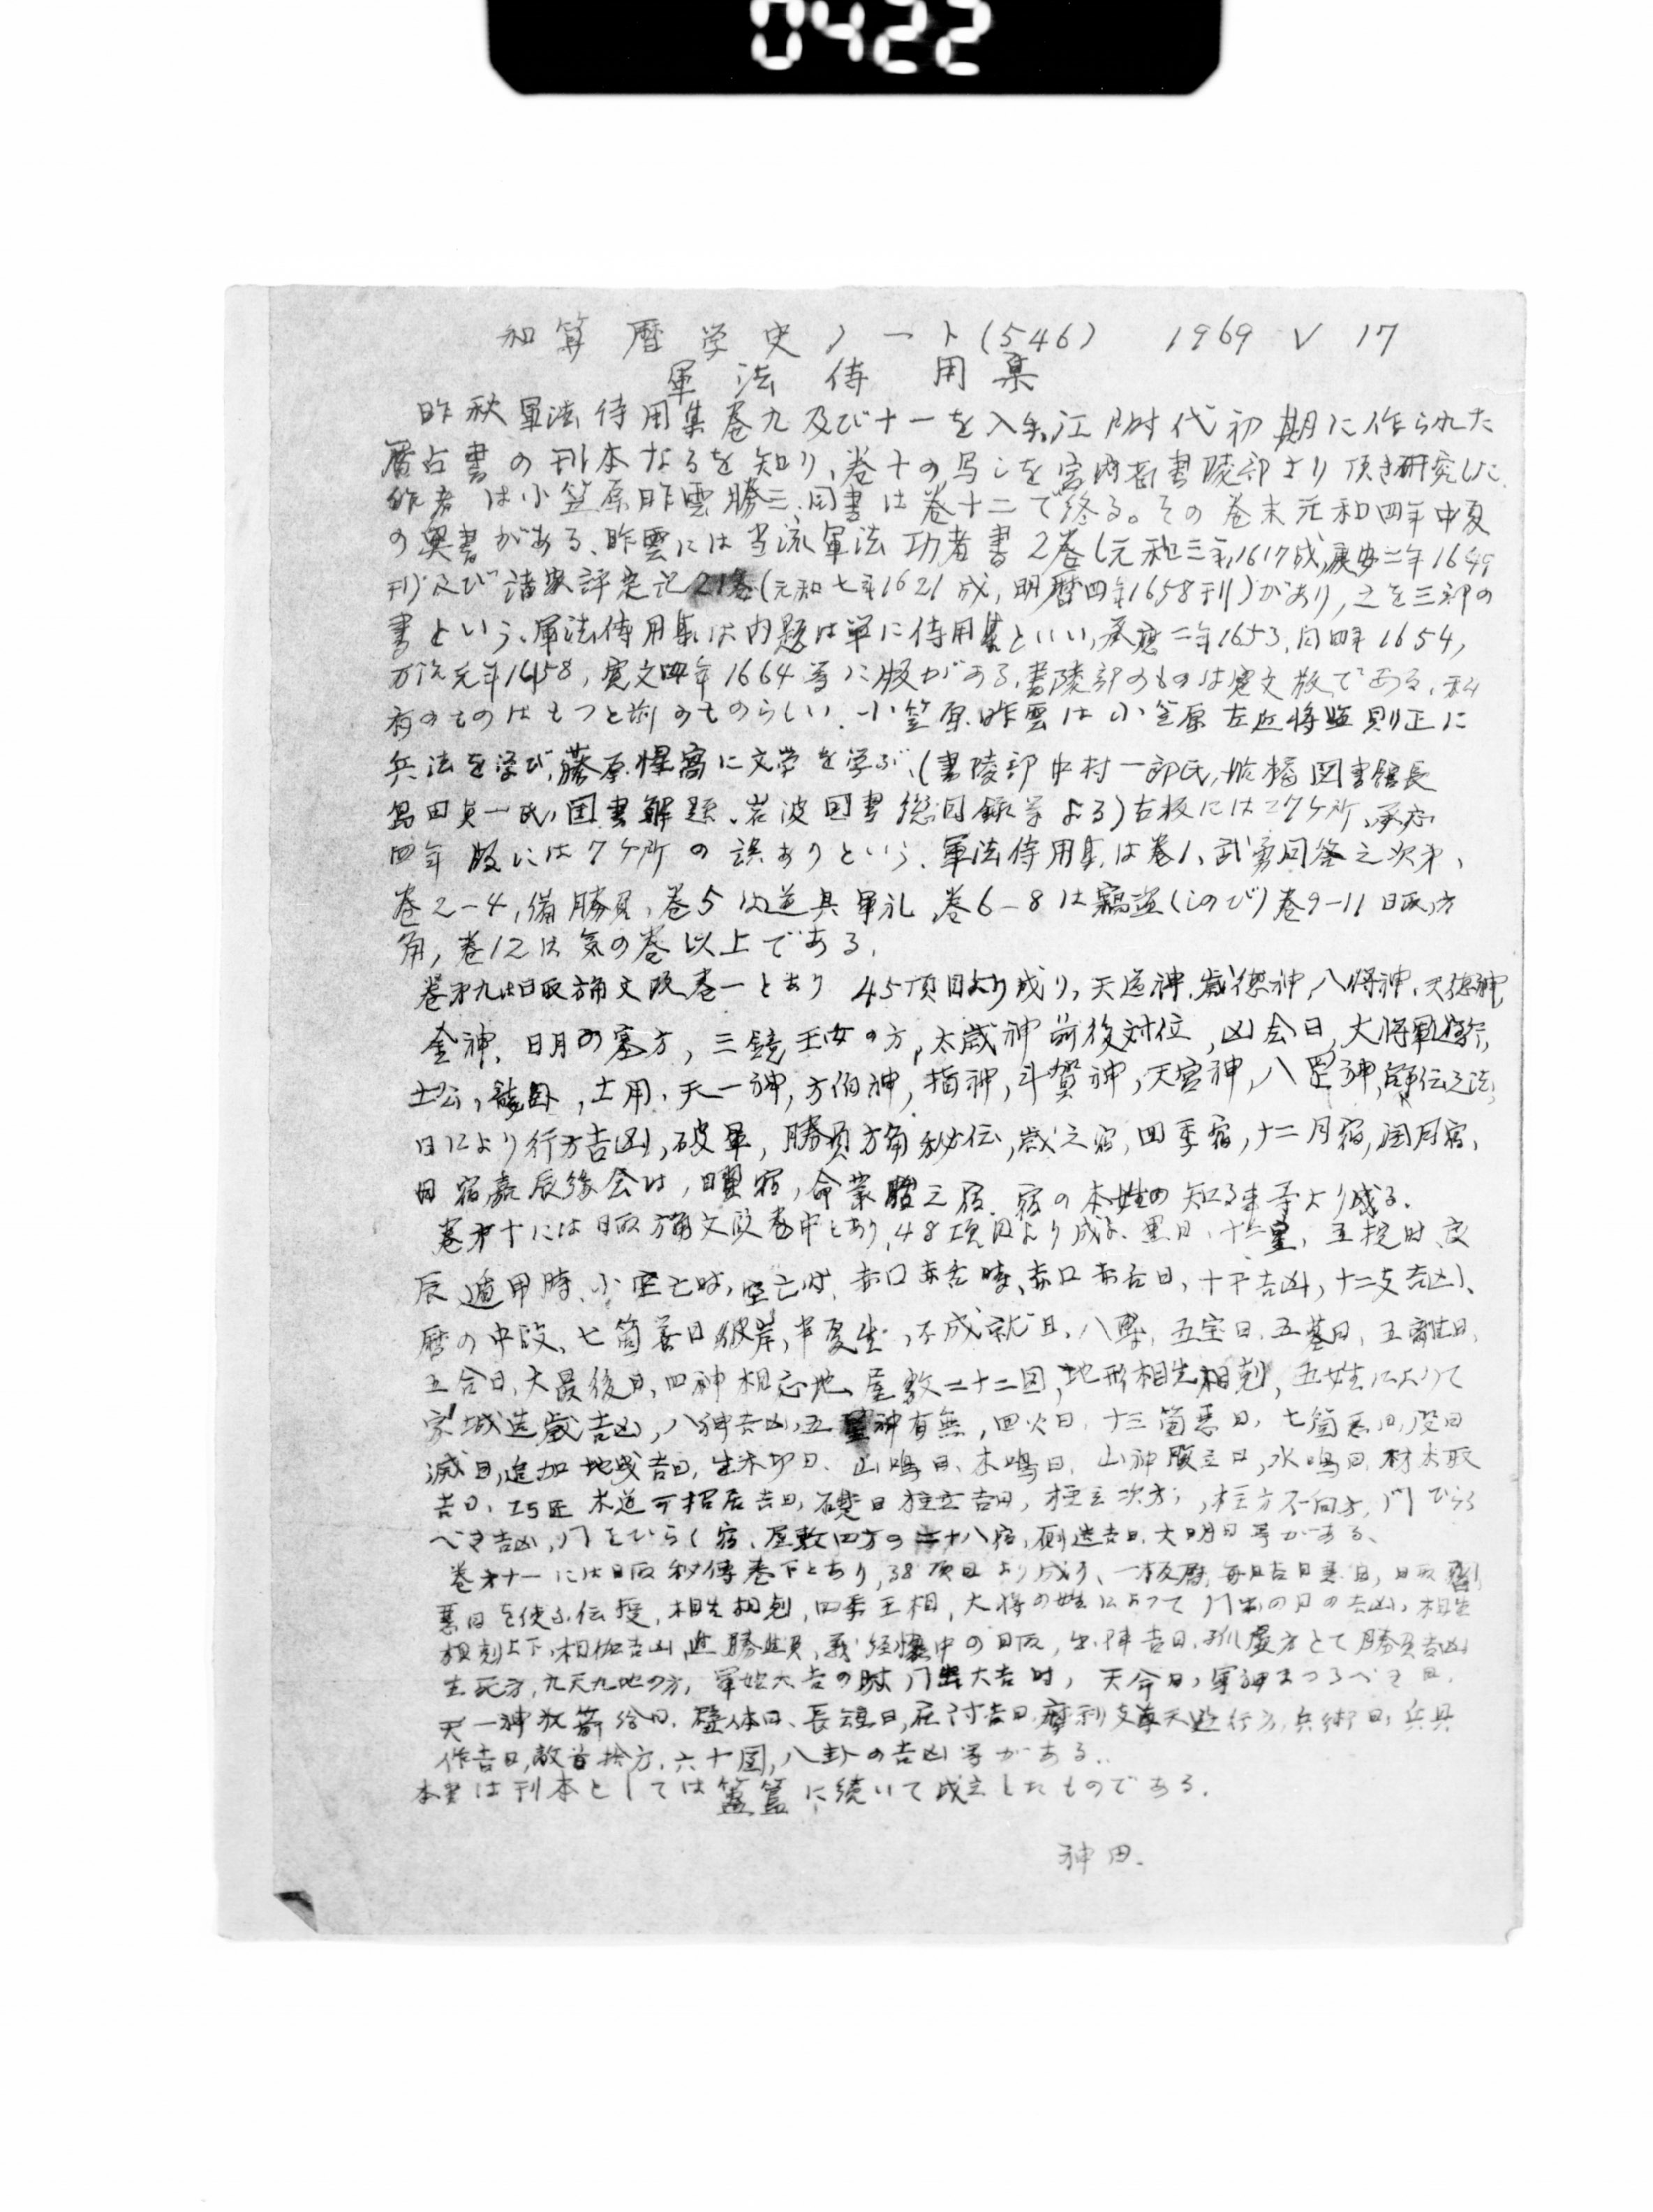 0422
和算暦学史ノート(546) 1969 V 17
軍法侍用集
昨秋軍法侍用集巻九及び十一を入手、江戸時代初期に作られた
暦占書の刊本なるを知り、巻十の写しを宮内省書陵部より頂き研究した
作者は小笠原昨雲勝三、同書は巻十二で終る。その巻末元和四年中夏
の奥書がある、昨雲には当流軍法功者書2巻(元和三年1617成,慶安二年1649
刊)及び諸家評定記21巻(元和七年1621成,明暦四年1658刊)があり,之を三部の
書という、軍法侍用集は内題は単に侍用集といい,承応二年1653,同四年1654,
万治元年1658,寛文四年1664等に版がある,書陵部のものは寛文版である,私
有のものはもつと前のものらしい.小笠原昨雲は小笠原左近将監則正に
兵法を学び,藤原惺窩に文学を学ぶ,(書陵部中村一郎氏,船橋図書館長
島田貞一氏,国書解題、岩波国書総目録等よる)古板には27ケ所,承応
四年版には7ケ所の誤ありという、軍法侍用集は巻1,武勇問答之次第、
巻2-4,備勝負,巻5は道具軍礼,巻6-8は竊盗(しのび)巻9-11日取方
角,巻12は気の巻以上である,
巻第九は日取方角文段巻一とあり 45項目より成り,天道神,歳徳神,八将神,天徳神
金神,日月の塞方,三鏡玉女の方,太歳神前後対位,凶会日,大将軍遊行,
土公,龍臥,土用,天一神,方伯神,指神,斗賀神,天宮神,八神,師伝之法,
日により行方吉凶,破軍,勝負方角秘伝,歳之宿,四季宿,十二月宿,閏月宿,
日宿嘉辰縁会は,曜宿,命業胎之宿.宿の本姓の知る事等より成る.
巻第十には日取方角文段巻中とあり,48項目より成る.黒日,十二星,五掟時,良
辰遁甲時,小空亡時,空亡時,赤口赤舌時,赤口赤舌日,十干吉凶,十二支吉凶,
暦の中段,七箇善日,彼岸,半夏生,不成就日,八専,五宝日,五墓日,五離日,
五合日,大最後日,四神相応地,屋敷二十二図,地形相生相剋,五姓によりて
家城造歳吉凶,八神吉凶,五星神有無,四火日,十三箇悪日,七箇悪日,没日
滅日,追加地戌吉日,生木切日.山鳴日,木鳴日,山神腹立日,水鳴日,材木取
吉日,巧匠木道可招居吉日,礎日柱立吉日,柱立次方,柱立方不向方,門ひらく
べき吉凶,門をひらく宿,屋敷四方の二十八宿,厠造吉日,大明日等がある、
巻第十一には日取秘傳巻下とあり,38項目より成り、一板暦,毎月吉日悪日,日取
悪日を使ふ伝授,相生相剋,四季王相,大将の姓によつて門出の月の吉凶,相生
相剋上下,相伽吉凶,勝負,義経懐中の日取,出陣吉日,孤虚方とて勝負吉凶
生死方,九天九地の方,軍始大吉の時,門出大吉時,天命日,軍神まつるべき日,
天一神放箭給日,礎体日,長短日,夜討吉日,摩利支尊天遊行方,兵術日,兵具
作吉日,敵首捨方,六十図,八卦の吉凶等がある.
本書は刊本としては簠簋に続いて成立したものである.
神田.